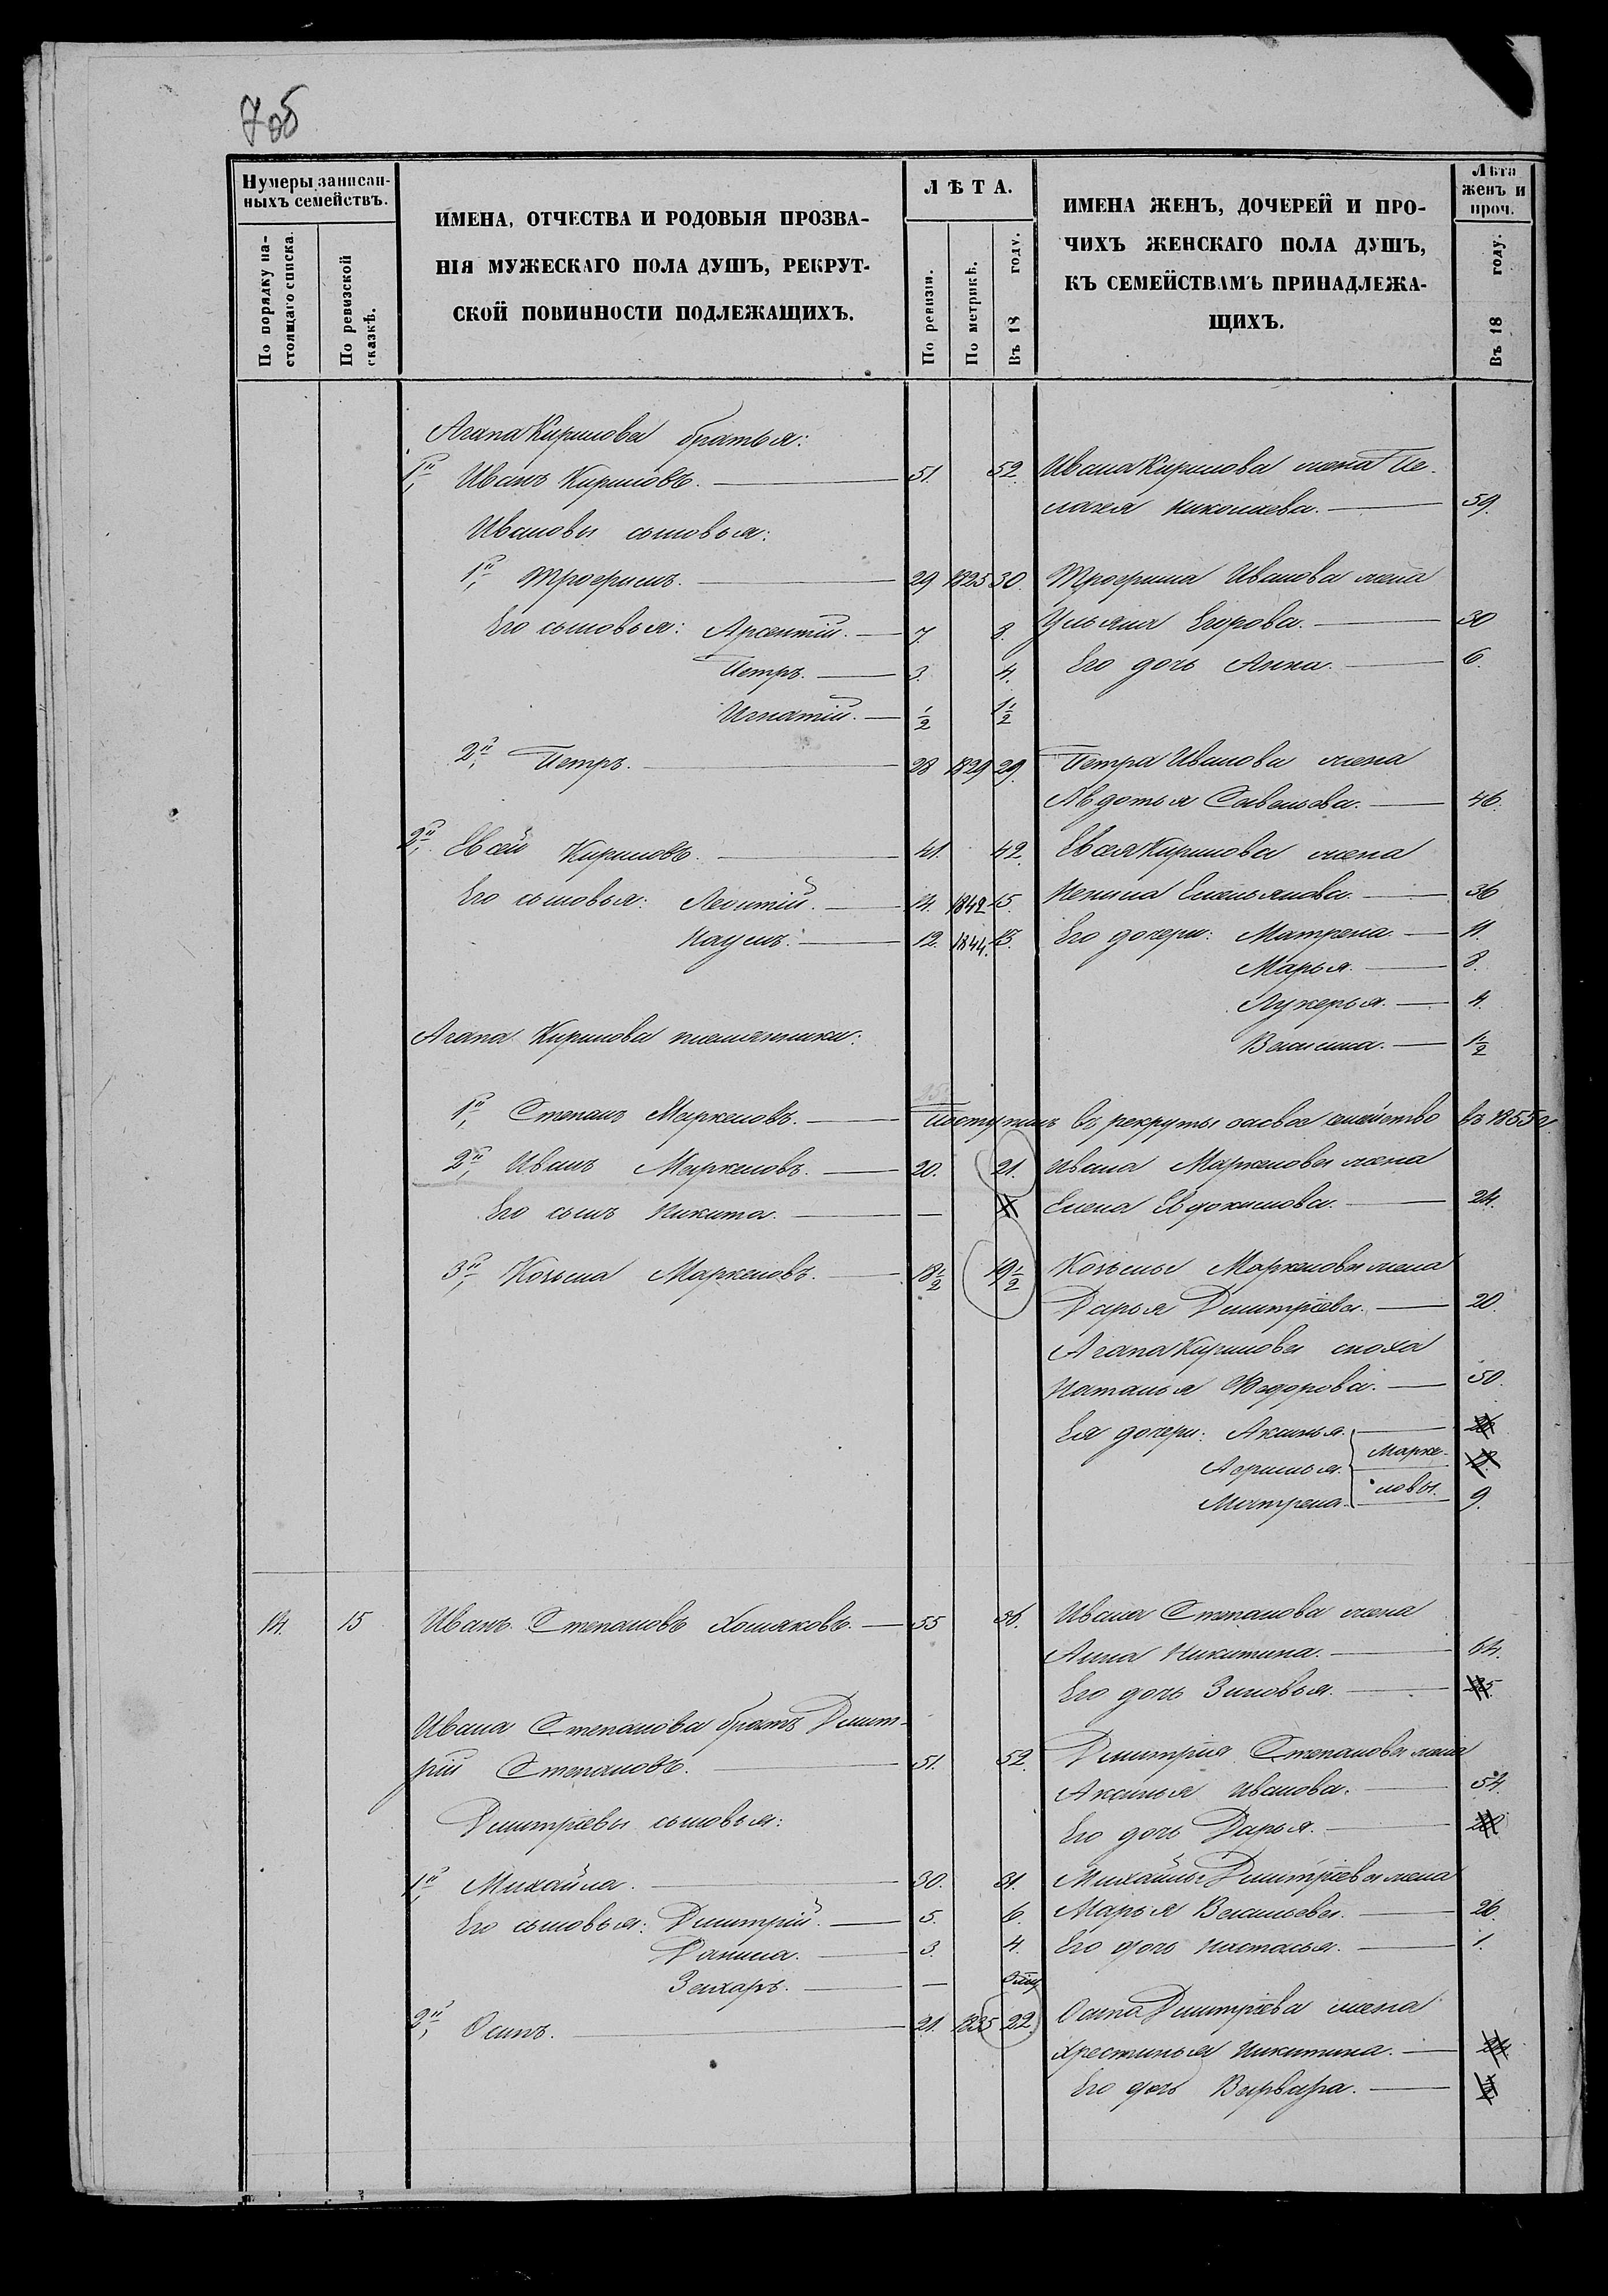 705
Нумеры записан-
ныхъ семействъ.
По порядку на-
стоящаго списка.
По ревизской
сказкѣ.
ИМЕНА, ОТЧЕСТВА И РОДОВЫЯ ПРОЗВА-
НІЯ МУЖЕСКАГО ПОЛА ДУШЪ, РЕКРУТ-
СКОЙ ПОВИННОСТИ ПОДЛЕЖАЩИХЪ.
ЛѢТА.
По ревизіи.
По метрикѣ.
Въ 18 году.
ИМЕНА ЖЕНЪ, ДОЧЕРЕЙ И ПРО-
ЧИХЪ ЖЕНСКАГО ПОЛА ДУШЪ,
КЪ СЕМЕЙСТВАМЪ ПРИНАДЛЕЖА-
ЩИХЪ.
Лѣта
женъ и
проч.
Въ 18 году.
Агапа Кирилова братья:
1й, Иванъ Кириловъ. 51. 52. Ивана Кирилова жена Пе-
лагея Николаева. 59.
Ивановы сыновья:
1й, Трофимъ. 29 1825 30. Трофима Иванова жена
Его сыновья: Арсентій. 7. 8. Ульяна Егорова. 30
Петръ. 3. 4. Его дочь Анна. 6.
Игнатій. 1/2 1 1/2
2й, Петръ. 28 1829 29. Петра Иванова жена
Авдотья Савельева. 46.
2й, Евсей Кириловъ. 41. 42. Евсея Кирилова жена
Его сыновья: Леонтій. 14. 1842 15. Ненила Емельянова. 36
Наумъ. 12. 1844. 13. Его дочери: Матрена. 11.
Марья. 8.
Лукерья. 4.
Агапа Кирилова племянники:
Василиса. 1 1/2
1й, Степанъ Маркеловъ. Поступилъ въ рекруты за свое семейство въ 1855 г.
2й, Иванъ Маркеловъ. 20. 21. Ивана Маркелова жена
Его сынъ Никита. — Елена Евдокимова. 24.
3й, Козьма Маркеловъ. 18 1/2 19 1/2 Козьмы Маркелова жена
Дарья Дмитріева. 20.
Агапа Кирилова сноха
Наталья Федорова. 50.
Ея дочери: Аксинья.
Афимья. Марке-
Матрена. ловы. 9.
14. 15 Иванъ Степановъ Хомяковъ. 55 56. Ивана Степанова жена
Анна Никитина. 64.
Его дочь Зиновья.
Ивана Степанова братъ Дмит-
рій Степановъ. 51. 52. Дмитрія Степанова жена
Аксинья Иванова. 54.
Дмитріевы сыновья:
Его дочь Дарья.
1й, Михайла. 30. 31. Михайлы Дмитріева жена
Его сыновья: Дмитрій. 5. 6. Марья Васильева. 26.
Данила. 3. 4. Его дочь Настасья. 1.
Захаръ. —
2й, Осипъ. 21. 1835 22. Осипа Дмитріева жена
Хрестинья Никитина.
Его дочь Варвара.